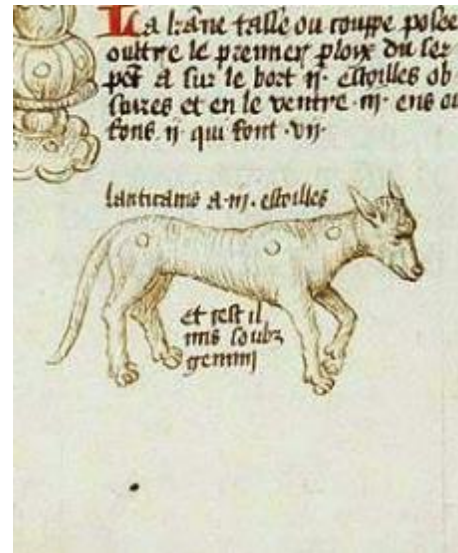 La hane tasse ou couppe posee
oultre le premier ploix du ser
pet a sur le bort ij. estoilles ob
scures et en le ventre .iij. ens ou
fons .ij. qui font .vij.
lanticanis a .iij. estoilles
Et cest il
mis soubz
gemini